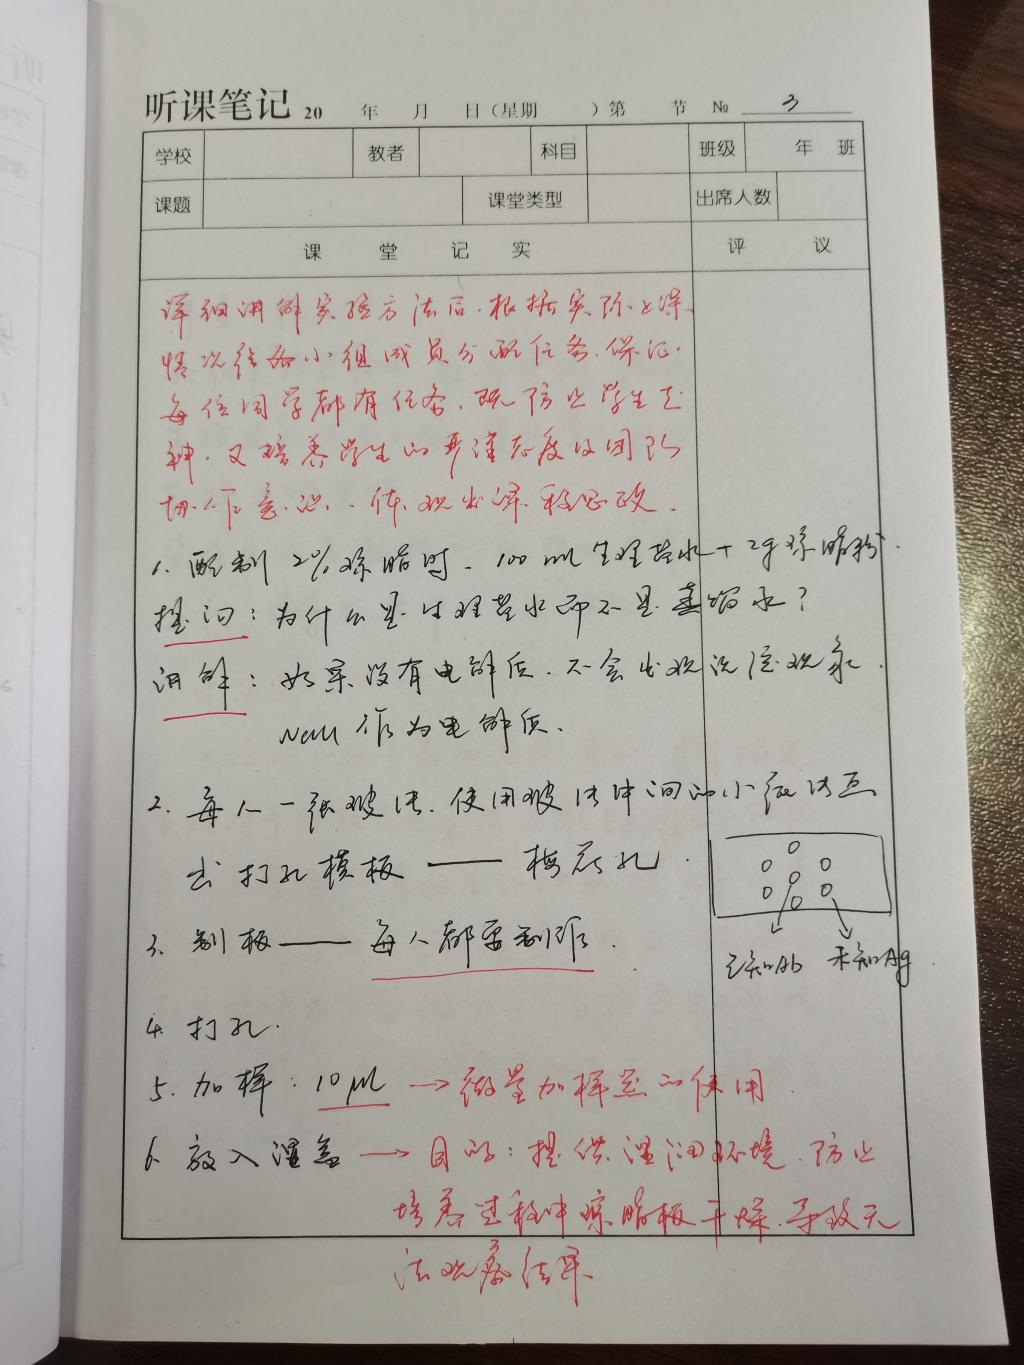 听课笔记 20 年 月 日（星期 ）第 节 № 3
学校 教者 科目 班级 年 班
课题 课堂类型 出席人数
课堂记实 评议
详细讲解实验方法后.根据实际上课
情况给各小组成员分配任务.保证
每位同学都有任务.既防止学生走
神.又培养学生的严谨态度及团队
协作意识.体现出课程思政.
1. 配制 2%琼脂时. 100 ml 生理盐水 + 2g琼脂粉.
提问：为什么是生理盐水而不是蒸馏水？
讲解：如果没有电解质.不会出现沉淀现象.
NaCl 作为电解质.
2. 每人一张玻片.使用玻片中间的小纸片画
出打孔模板——梅花孔.
3. 制板——每人都要制作.
已知Ab 未知Ag
4. 打孔.
5. 加样：10μl → 微量加样器的使用
6. 放入湿盒 → 目的：提供湿润环境.防止
培养过程中琼脂板干燥.导致无
法观察结果